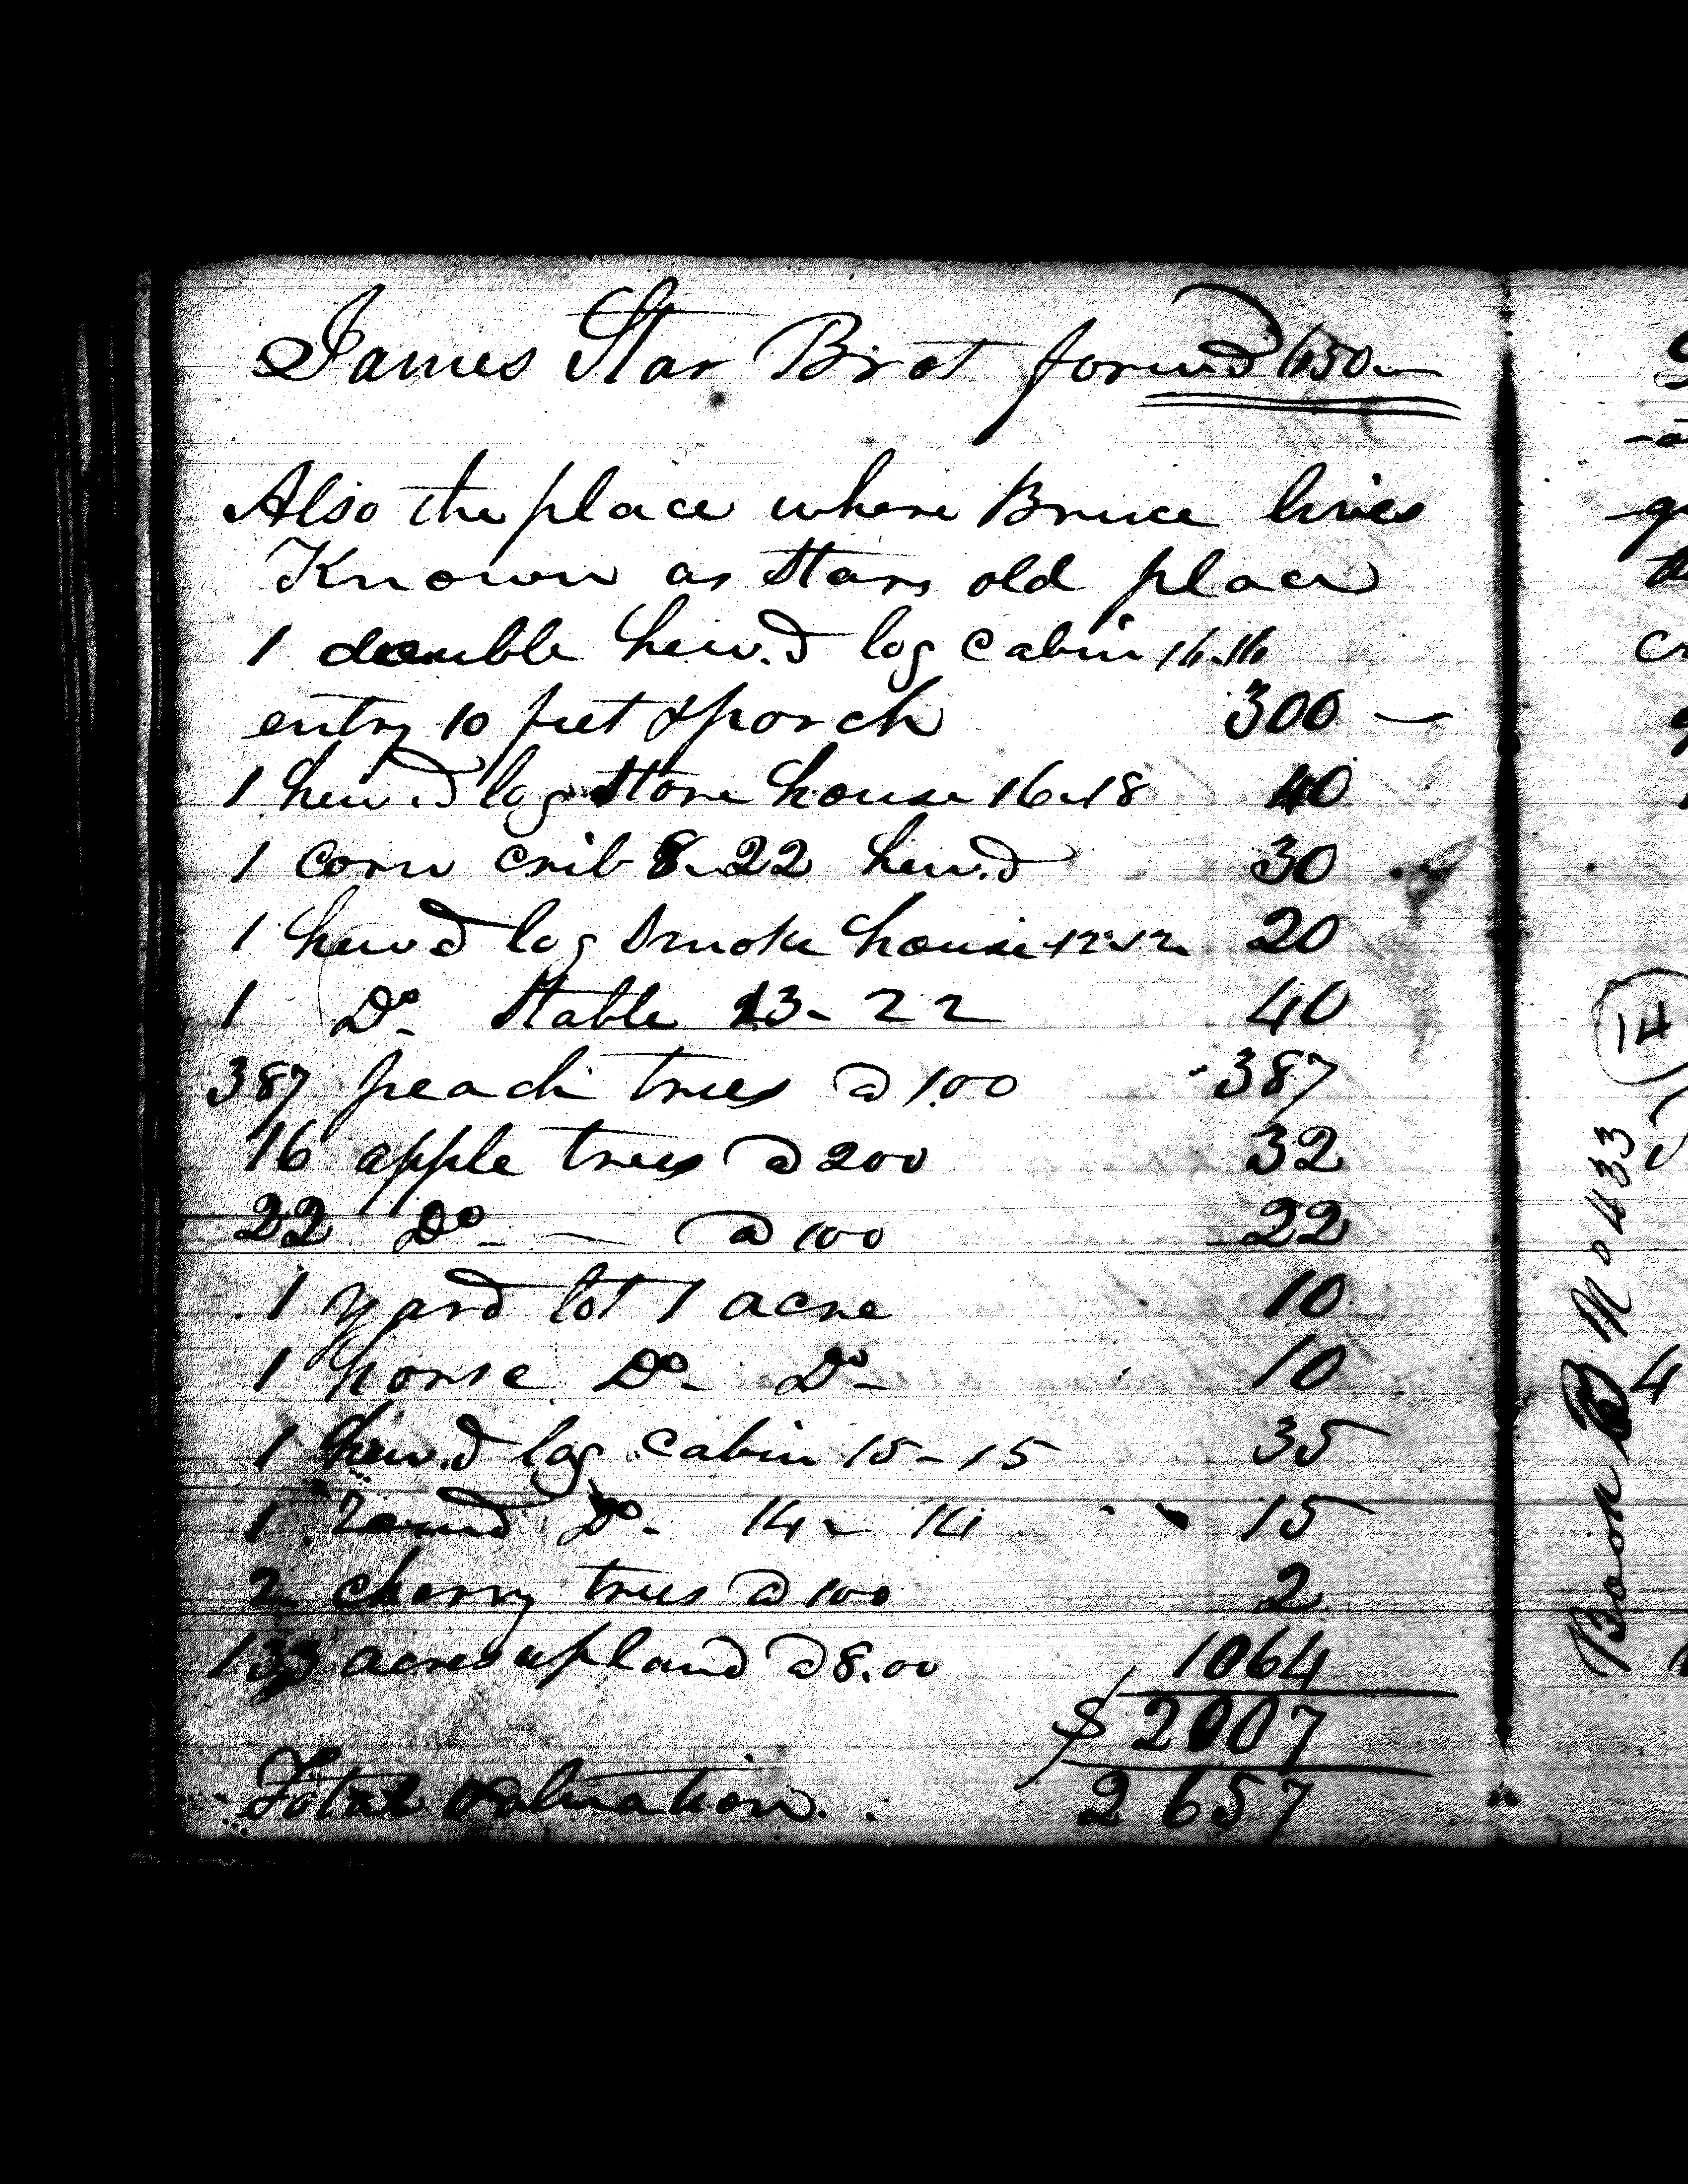 James Star Brot forw.d 650 —
Also the place where Bruce lives
Known as Stars old place
1 double hew.d log cabin 16-16
entry 10 feet & porch 300 —
1 hew.d log Store house 16-18 40
1 Corn crib 8-22 hew.d 30
1 hewd log Smoke house 12-12 20
1 Do. Stable 13-22 40
387 peach trees @ 1.00 387
16 apple trees @ 200 32
22 Do. — @ 100 22
1 yard lot 1 acre 10
1 horse Do. Do. 10
1 hew.d log cabin 15-15 35
1 Round Do. 14-14 15
2 cherry trees @ 100 2
133 acres upland @ 8.00 1064
$ 2007
Total valuation. 2657
14
Book B No 433